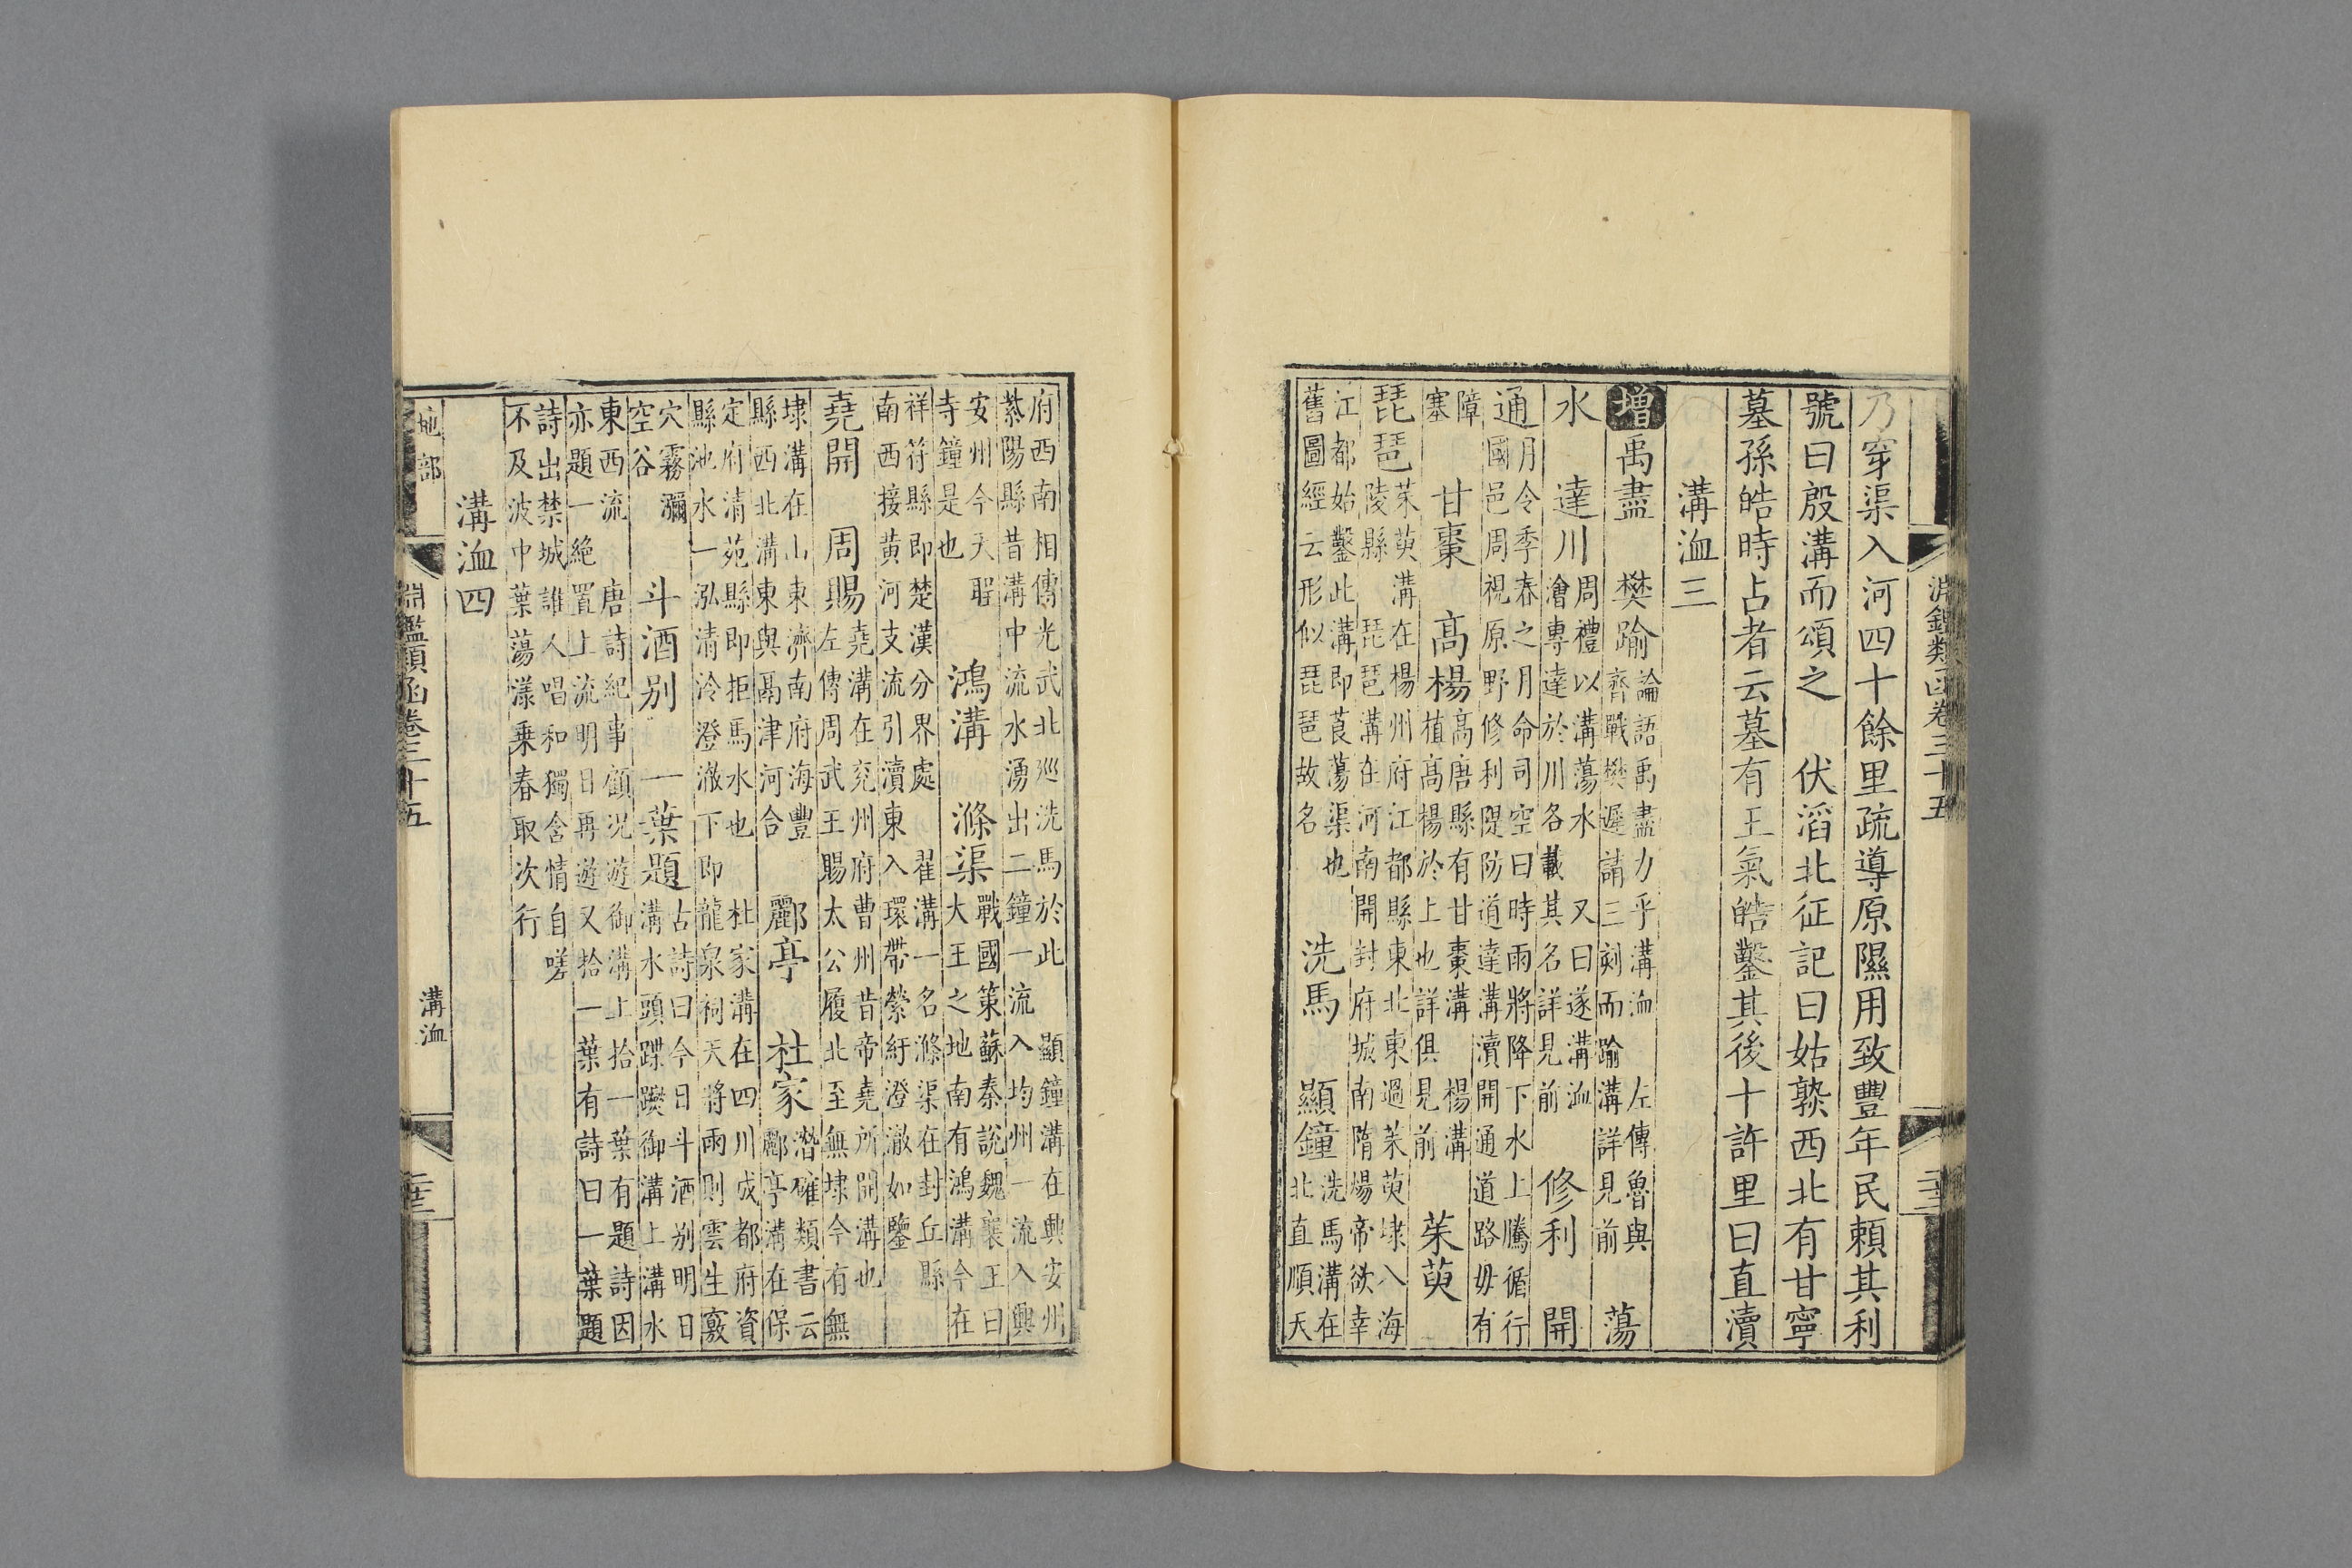 淵鑑類函卷三十五
乃穿渠入河四十餘里疏導原隰用致豐年民賴其利
號曰殷溝而頌之　伏滔北征記曰姑孰西北有甘寧
墓孫皓時占者云墓有王氣皓鑿其後十許里曰直瀆
溝洫三
增禹盡　樊踰　論語禹盡力乎溝洫　左傳魯與齊戰樊遲請三刻而踰溝詳見前　蕩
水　達川　周禮以溝蕩水　又曰遂溝洫澮專達於川各載其名詳見前　修利　開
通　月令季春之月命司空曰時雨將降下水上騰循行國邑周視原野修利隄防道達溝瀆開通道路毋有
障塞　甘棗　高楊　高唐縣有甘棗溝　楊溝植高楊於上也詳俱見前　茱萸
琵琶　茱萸溝在楊州府江都縣東北東過茱萸埭入海陵縣　琵琶溝在河南開封府城南隋煬帝欲幸
江都始鑿此溝即莨蕩渠也舊圖經云形似琵琶故名　洗馬　顯鐘　洗馬溝在北直順天
府西南相傳光武北巡洗馬於此　顯鐘溝在興安州紫陽縣昔溝中流水湧出二鐘一流入均州一流入興
安州今天聖寺鐘是也　鴻溝　滌渠　戰國策蘇秦說魏襄王曰大王之地南有鴻溝今在
祥符縣即楚漢分界處　翟溝一名滌渠在封丘縣南西接黃河支流引瀆東入環帶縈紆澄澈如鑒
堯開　周賜　堯溝在兖州府曹州昔帝堯所開溝也左傳周武王賜太公履北至無埭今有無
埭溝在山東濟南府海豐縣西北溝東與鬲津河合　酈亭　杜家　潛確類書云酈亭溝在保
定府清苑縣即拒馬水也　杜家溝在四川成都府資縣池水一泓清泠澄澈下即龍泉祠天將雨則雲生竅
穴霧瀰空谷　斗酒别　一葉題　古詩曰今日斗酒别明日溝水頭蹀躞御溝上溝水
東西流　唐詩紀事顧況遊御溝上拾一葉有題詩因亦題一絶置上流明日再遊又拾一葉有詩曰一葉題
詩出禁城誰人唱和獨含情自嗟不及波中葉蕩漾乗春取次行
溝洫四
地部　淵鑑類函卷三十五　溝洫